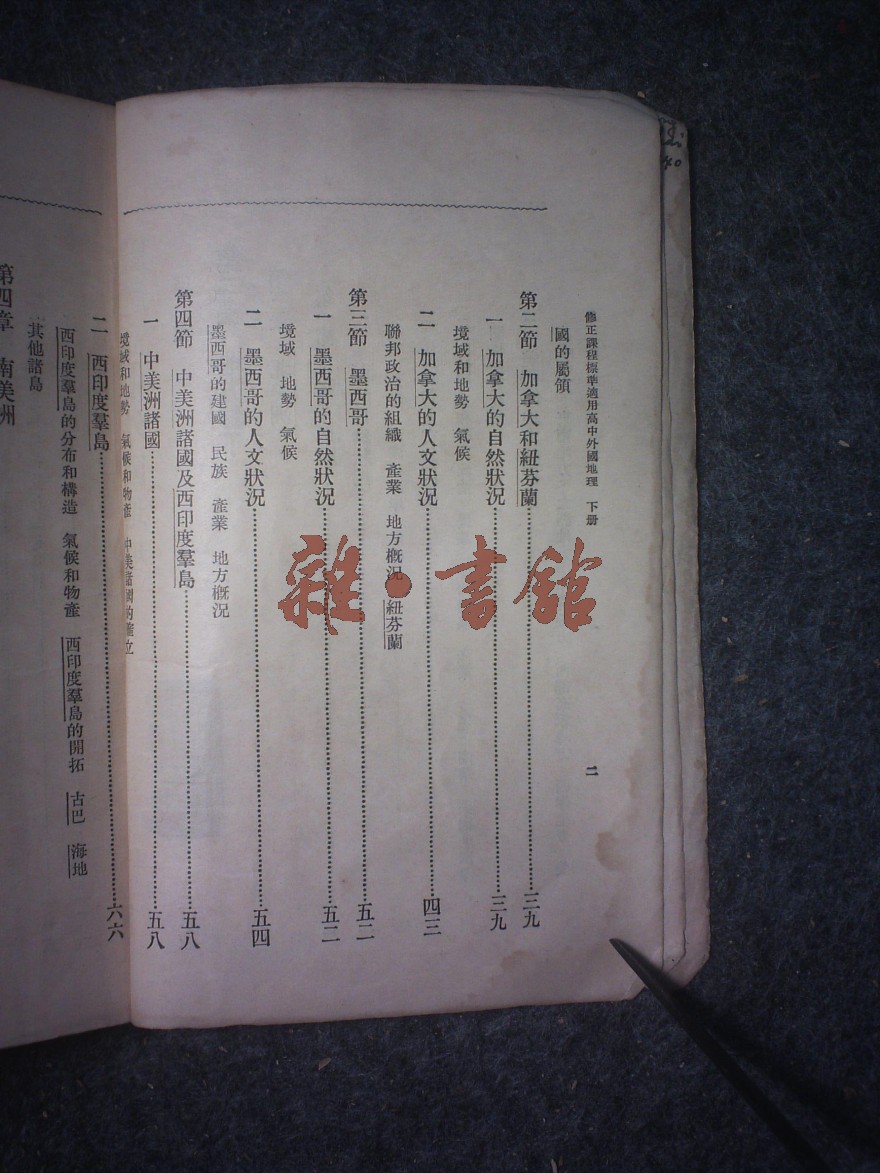 修正課程標準適用高中外國地理　下册
二
國的屬領
第二節　加拿大和紐芬蘭……三九
一　加拿大的自然狀況……三九
境域和地勢　氣候
二　加拿大的人文狀況……四三
聯邦政治的組織　產業　地方概況　紐芬蘭
第三節　墨西哥……五二
一　墨西哥的自然狀況……五二
境域　地勢　氣候
二　墨西哥的人文狀況……五四
墨西哥的建國　民族　產業　地方概況
第四節　中美洲諸國及西印度羣島……五八
一　中美洲諸國……五八
境域和地勢　氣候和物產　中美諸國的建立
二　西印度羣島……六六
西印度羣島的分布和構造　氣候和物產　西印度羣島的開拓　古巴　海地
其他諸島
第四章　南美洲
雜·書館
40